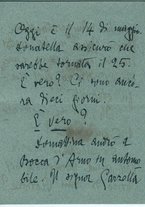 Oggi è il 14 di maggio.
Donatella assicurò che
sarebbe tornata il 25.
È vero? Ci sono anco-
ra dieci giorni.
È vero?
Domattina andrò a
Bocca d'Arno in automo-
bile. Il signor